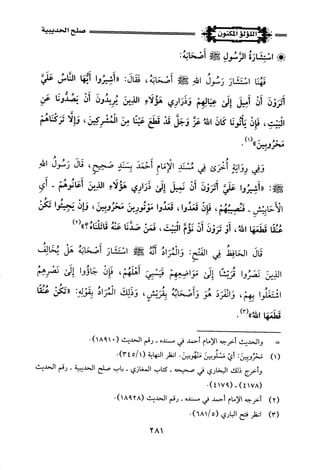 اللؤلؤ المكنون
صلح الحديبية
اسْتِشَارَةُ الرَّسُولِ ﷺ أَصْحَابَهُ:
فَهُنَا اسْتَشَارَ رَسُولُ اللهِ ﷺ أَصْحَابَهُ، فَقَالَ: «أَشِيرُوا أَيُّهَا النَّاسُ عَلَيَّ
أَتَرَوْنَ أَنْ أَمِيلَ إِلَى عِيَالِهِمْ وَذَرَارِي هَؤُلَاءِ الذِينَ يُرِيدُونَ أَنْ يَصُدُّونَا عَنِ
الْبَيْتِ، فَإِنْ يَأْتُونَا كَانَ اللهُ عَزَّ وَجَلَّ قَدْ قَطَعَ عَيْنًا مِنَ الْمُشْرِكِينَ، وَإِلَّا تَرَكْنَاهُمْ
مَحْرُوبِينَ»(١).
وَفِي رِوَايَةٍ أُخْرَى فِي مُسْنَدِ الْإِمَامِ أَحْمَدَ بِسَنَدٍ صَحِيحٍ، قَالَ رَسُولُ اللهِ
ﷺ: «أَشِيرُوا عَلَيَّ أَتَرَوْنَ أَنْ نَمِيلَ إِلَى ذَرَارِي هَؤُلَاءِ الذِينَ أَعَانُوهُمْ - أَيِ
الْأَحَابِيشِ - فَنُصِيبُهُمْ، فَإِنْ قَعَدُوا، قَعَدُوا مَوْتُورِينَ مَحْرُوبِينَ، وَإِنْ يَجِيئُوا تَكُنْ
عُنُقًا قَطَعَهَا اللهُ، أَوْ تَرَوْنَ أَنْ نَؤُمَّ الْبَيْتَ، فَمَنْ صَدَّنَا عَنْهُ قَاتَلْنَاهُ؟»(٢)
قَالَ الْحَافِظُ فِي الْفَتْحِ: وَالْمُرَادُ أَنَّهُ ﷺ اسْتَشَارَ أَصْحَابَهُ هَلْ يُخَالِفُ
الذِينَ نَصَرُوا قُرَيْشًا إِلَى مَوَاضِعِهِمْ فَيَسْبِيَ أَهْلَهُمْ، فَإِنْ جَاؤُوا إِلَى نَصْرِهِمُ
اشْتَغَلُوا بِهِمْ، وَانْفَرَدَ هُوَ وَأَصْحَابُهُ بِقُرَيْشٍ، وَذَلِكَ الْمُرَادُ بِقَوْلِهِ: «تَكُنْ عُنُقًا
قَطَعَهَا اللهُ»(٣).
= والحديث أخرجه الإمام أحمد في مسنده - رقم الحديث (١٨٩١٠).
(١) مَحْرُوبِينَ: أَيْ مَسْلُوبِينَ مَنْهُوبِينَ. انظر النهاية (٣٤٥/١)
وأخرج ذلك البخاري في صحيحه - كتاب المغازي - باب صلح الحديبية - رقم الحديث
(٤١٧٨) - (٤١٧٩).
(٢) أخرجه الإمام أحمد في مسنده - رقم الحديث (١٨٩٢٨).
(٣) انظر فتح الباري (٦٨١/٥)
٢٨١